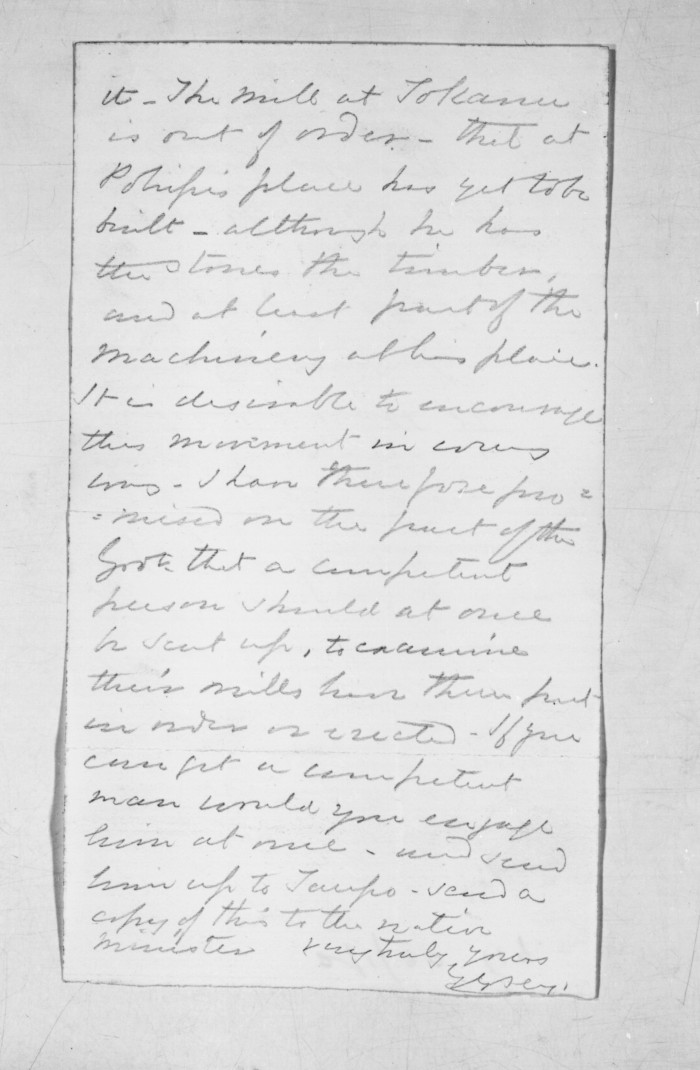 it - The mill at Tokanu
is out of order - that at
Pohipi's place has yet to be
built - although he has
the stones the timber,
and at least part of the
machinery at his place.
It is desirable to encourage
this movement in every
way - I have therefore pro=
=mised on the part of the
Govt. that a competent
person should at once
be sent up, to examine
their mills have them put
in order or erected - If you
can get a competent
man would you engage
him at once - and send
him up to Taupo - send a
copy of this to the native
minister very truly yours
G Grey.